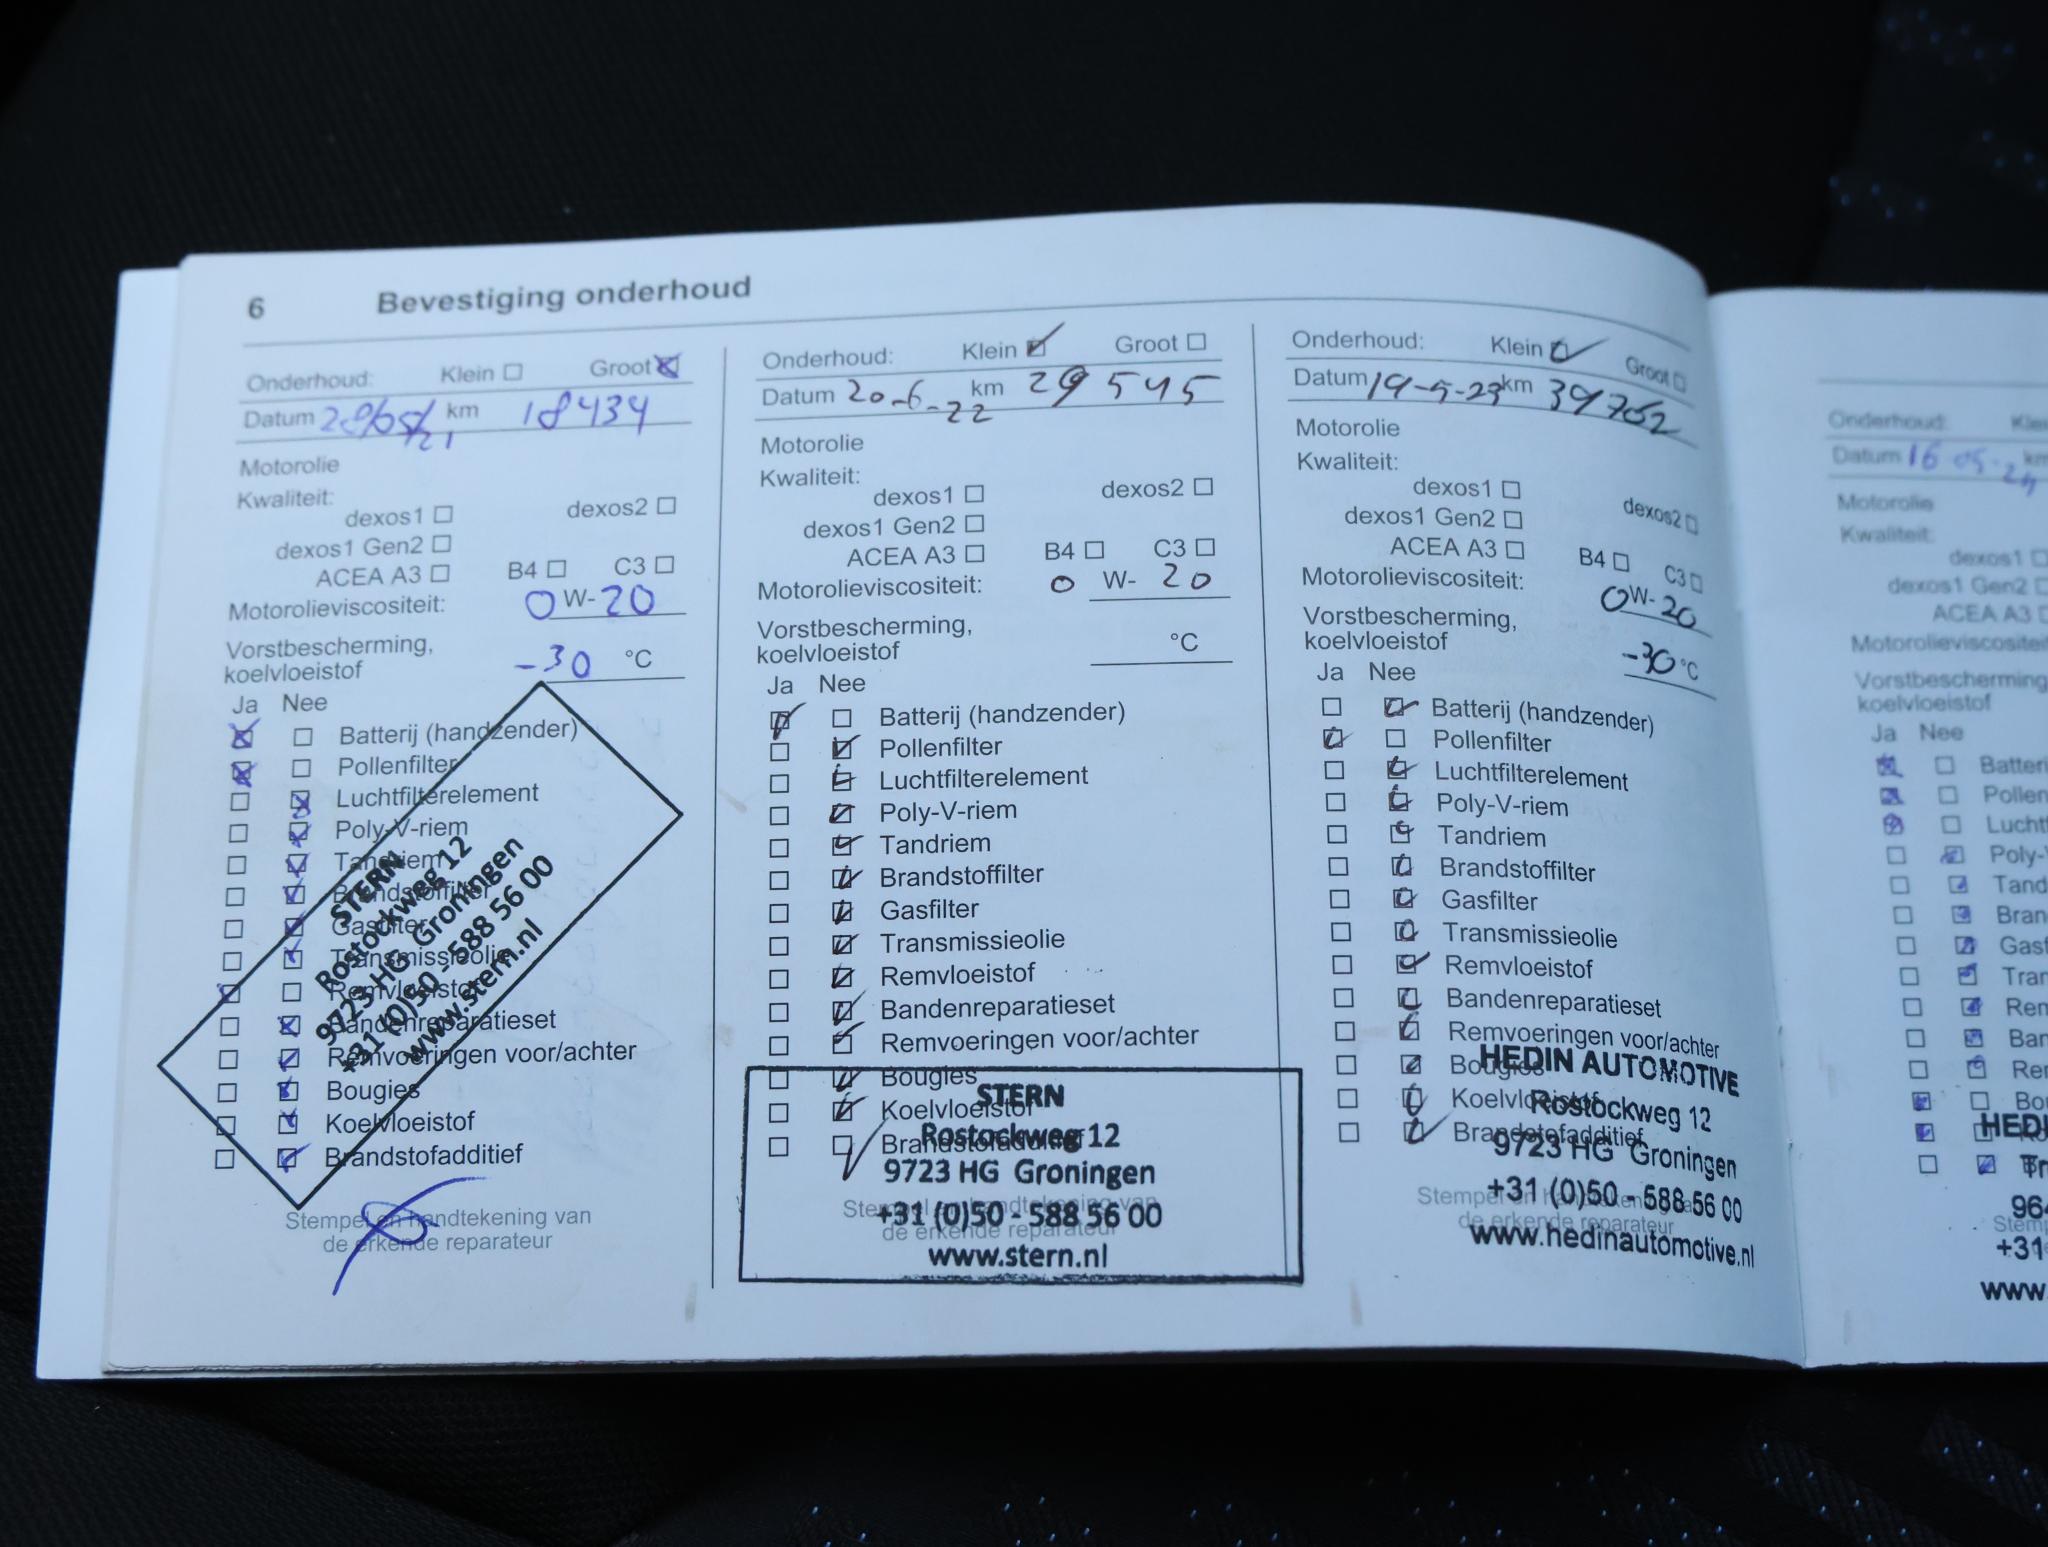 6 Bevestiging onderhoud
Onderhoud: Klein ☐ Groot ☒
Datum km 18434
Motorolie
Kwaliteit:
dexos1 ☐ dexos2 ☐
dexos1 Gen2 ☐
ACEA A3 ☐ B4 ☐ C3 ☐
Motorolieviscositeit: 0 W-20
Vorstbescherming,
koelvloeistof -30 °C
Ja Nee
☒ ☐ Batterij (handzender)
☒ ☐ Pollenfilter
☐ ☒ Luchtfilterelement
☐ ☒ Poly-V-riem
☐ ☒ Tandriem
☐ ☒ Brandstoffilter
☐ ☒ Gasfilter
☐ ☒ Transmissieolie
☒ ☐ Remvloeistof
☐ ☒ Bandenreparatieset
☐ ☒ Remvoeringen voor/achter
☐ ☒ Bougies
☐ ☒ Koelvloeistof
☐ ☒ Brandstofadditief
Stempel en handtekening van
de erkende reparateur
STERN
Rostockweg 12
9723 HG Groningen
+31 (0)50 - 588 56 00
www.stern.nl
Onderhoud: Klein ☒ Groot ☐
Datum 20-6-22 km 29 545
Motorolie
Kwaliteit:
dexos1 ☐ dexos2 ☐
dexos1 Gen2 ☐
ACEA A3 ☐ B4 ☐ C3 ☐
Motorolieviscositeit: 0 W- 20
Vorstbescherming,
koelvloeistof °C
Ja Nee
☒ ☐ Batterij (handzender)
☐ ☒ Pollenfilter
☐ ☒ Luchtfilterelement
☐ ☒ Poly-V-riem
☐ ☒ Tandriem
☐ ☒ Brandstoffilter
☐ ☒ Gasfilter
☐ ☒ Transmissieolie
☐ ☒ Remvloeistof
☐ ☒ Bandenreparatieset
☐ ☒ Remvoeringen voor/achter
☐ ☒ Bougies
☐ ☒ Koelvloeistof
☐ ☒ Brandstofadditief
Stempel en handtekening van
de erkende reparateur
STERN
Rostockweg 12
9723 HG Groningen
+31 (0)50 - 588 56 00
www.stern.nl
Onderhoud: Klein ☒ Groot ☐
Datum 19-5-23 km 39762
Motorolie
Kwaliteit:
dexos1 ☐ dexos2 ☐
dexos1 Gen2 ☐
ACEA A3 ☐ B4 ☐ C3 ☐
Motorolieviscositeit: 0W-20
Vorstbescherming,
koelvloeistof -30 °C
Ja Nee
☐ ☒ Batterij (handzender)
☒ ☐ Pollenfilter
☐ ☒ Luchtfilterelement
☐ ☒ Poly-V-riem
☐ ☒ Tandriem
☐ ☒ Brandstoffilter
☐ ☒ Gasfilter
☐ ☒ Transmissieolie
☐ ☒ Remvloeistof
☐ ☒ Bandenreparatieset
☐ ☒ Remvoeringen voor/achter
☐ ☒ Bougies
☐ ☒ Koelvloeistof
☐ ☒ Brandstofadditief
Stempel en handtekening van
de erkende reparateur
HEDIN AUTOMOTIVE
Rostockweg 12
9723 HG Groningen
+31 (0)50 - 588 56 00
www.hedinautomotive.nl
Onderhoud: Klei
Datum 16 05-24 km
Motorolie
Kwaliteit:
dexos1 ☐
dexos1 Gen2 ☐
ACEA A3
Motorolieviscositei
Vorstbescherming
koelvloeistof
Ja Nee
☒ ☐ Batteri
☒ ☐ Pollen
☒ ☐ Lucht
☐ ☒ Poly-
☐ ☒ Tand
☐ ☒ Bran
☐ ☒ Gasf
☐ ☒ Tran
☐ ☒ Rem
☐ ☒ Ban
☐ ☒ Rer
☒ ☐ Bou
HEDI
Tr
964
Stem
+31
www.